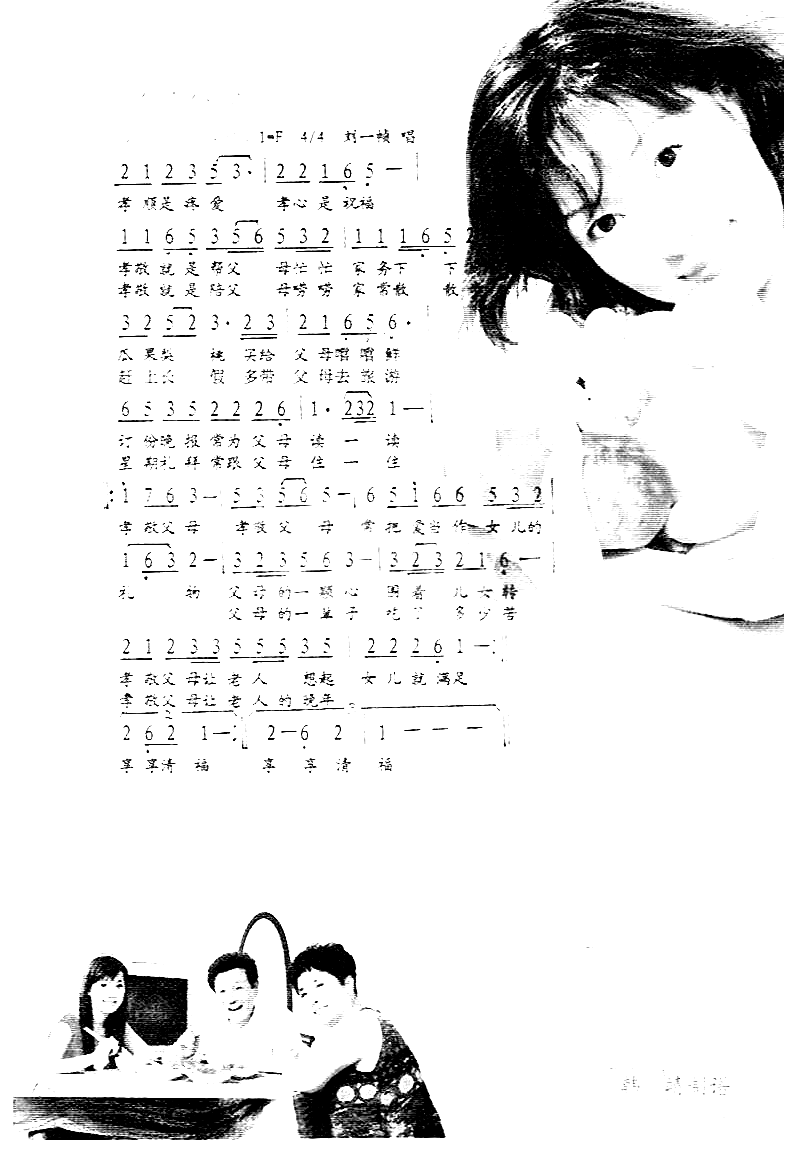 1=F 4/4 刘一祯 唱
2 1 2 3 5 3· | 2 2 1 6 5 — |
孝顺是疼爱 孝心是祝福
1 1 6 5 3 5 6 5 3 2 | 1 1 1 6 5 2
孝敬就是帮父 母忙忙 家务下 下
孝敬就是陪父 母唠唠 家常散 散
3 2 5 2 3· 2 3 | 2 1 6 5 6·
瓜果梨 桃 买给 父母尝尝鲜
赶上长 假 多带 父母去旅游
6 5 3 5 2 2 2 6 | 1· 2 3 2 1 — |
订份晚报常为父母 读一 读
星期礼拜常跟父母 住一 住
1 7 6 3 — | 5 3 5 6 5 — | 6 5 1 6 6 5 3 2
孝敬父母 孝敬父 母 常把爱当作女儿的
1 6 3 2 — | 3 2 3 5 6 3 — | 3 2 3 2 1 6 —
礼 物 父母的一颗心 围着 儿女转
父母的一辈子 吃了 多少苦
2 1 2 3 3 5 5 5 3 5 | 2 2 2 6 1 — :
孝敬父母让老人 想起 女儿就满足
孝敬父母让老人的晚年
2 6 2 1 — : 2 — 6 2 | 1 — — — |
享享清 福 享 享 清 福